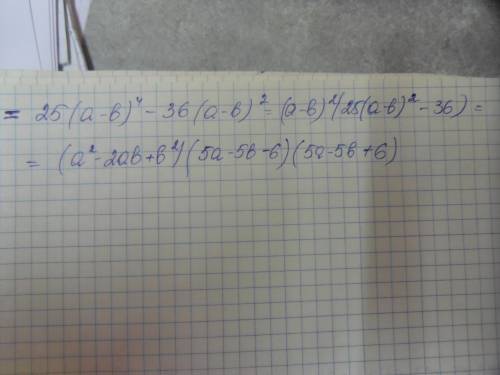 = 25(a-b)⁴ - 36(a-b)² = (a-b)²(25(a-b)² - 36) =
= (a²-2ab+b²)(5a-5b-6)(5a-5b+6)